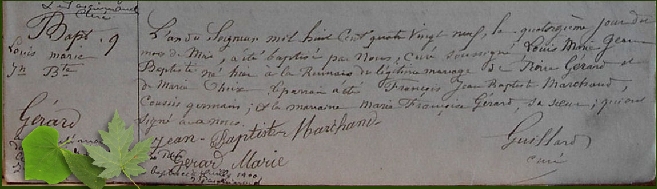 Bapt. 9
Louis marie
Jn Bte
Gérard
L'an du Seigneur mil huit Cent quatre Vingt neuf, le quatorzième jour du
mois de Mai, a été baptisé par Nous, Curé soussigné Louis Marie Jean
Baptiste né hier à la du légitime mariage de Gérard et
de Marie Le parrain a été François Jean Baptiste Marchand,
Cousin germain; et la marraine Marie Françoise Gérard, sa sœur; qui ont
signé avec nous.
Jean-Baptiste Marchand
Gerard Marie
Guillard
curé